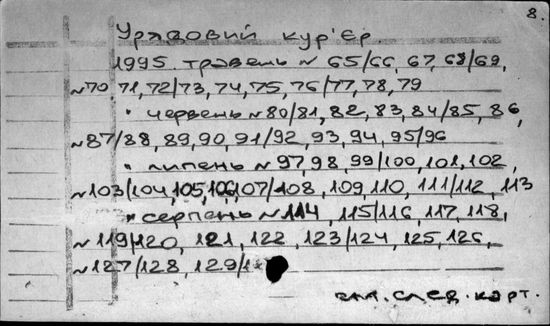 8.
Урядовий кур'єр.
1995. травень № 65/66, 67, 68/69,
№70 71, 72/73, 74, 75, 76/77, 78, 79
" червень №80/81, 82, 83, 84/85, 86,
№87/88, 89, 90, 91/92, 93, 94, 95/96
" липень №97, 98, 99/100, 101, 102,
№103/104, 105, 106, 107/108, 109, 110, 111/112, 113
" серпень №114, 115/116, 117, 118,
№119/120, 121, 122, 123/124, 125, 126,
№127/128, 129/1
см. след. карт.